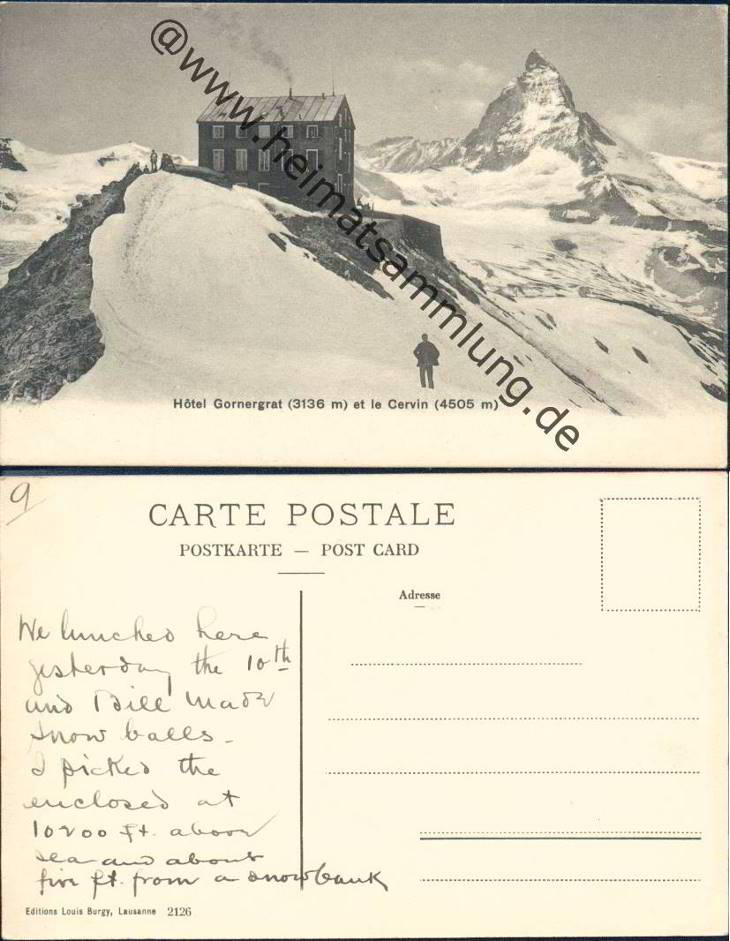 @www.heimatsammlung.de
Hôtel Gornergrat (3136 m) et le Cervin (4505 m)
9
CARTE POSTALE
POSTKARTE — POST CARD
Adresse
We lunched here
yesterday the 10th
and Bill made
snow balls -
I picked the
enclosed at
10200 ft. above
sea and about
five ft. from a snowbank
Editions Louis Burgy, Lausanne 2126